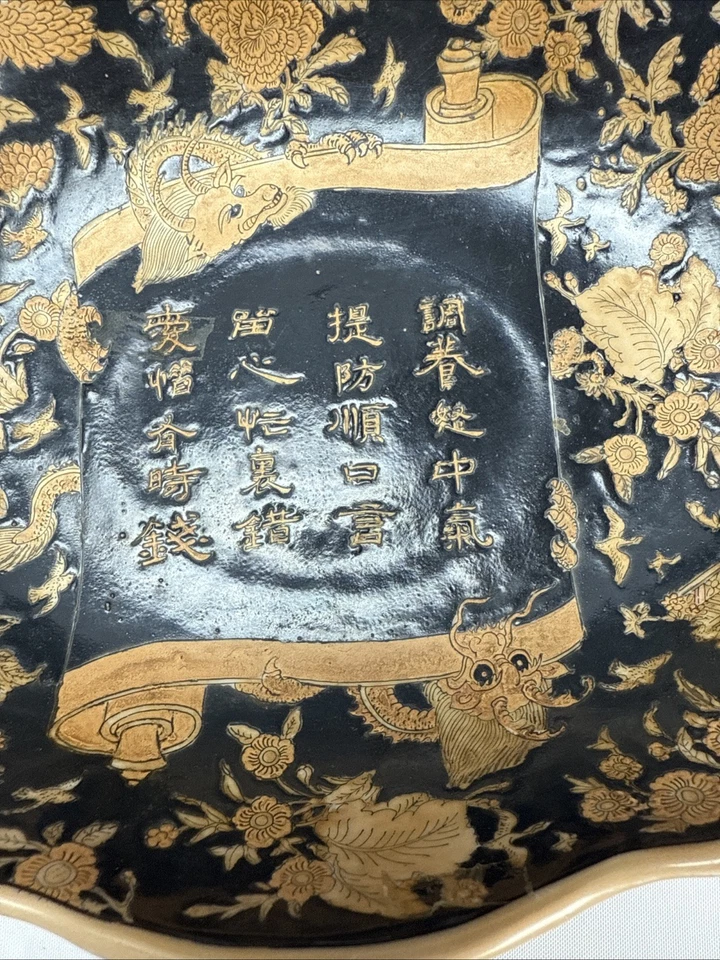 調養怒中氣
提防順日言
留心忙裏錯
愛惜有時錢